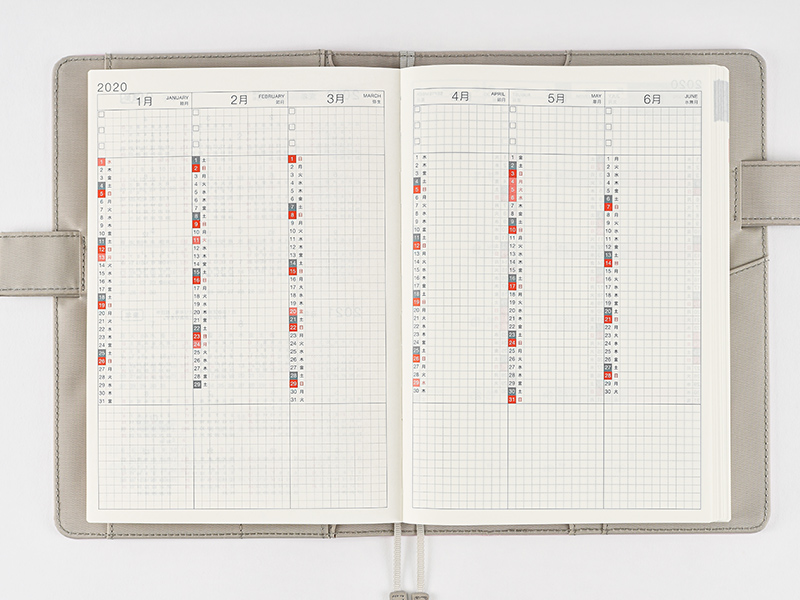 2020
1月
JANUARY
2月
FEBRUARY
3月
MARCH
弥生
1 水
2 木
3 金
4 土
5 日
6 月
7 火
8 水
9 木
10 金
11 土
12 日
13 月
14 火
15 水
16 木
17 金
18 土
19 日
20 月
21 火
22 水
23 木
24 金
25 土
26 日
27 月
28 火
29 水
30 木
31 金
1 土
2 日
3 月
4 火
5 水
6 木
7 金
8 土
9 日
10 月
11 火
12 水
13 木
14 金
15 土
16 日
17 月
18 火
19 水
20 木
21 金
22 土
23 日
24 月
25 火
26 水
27 木
28 金
29 土
1 日
2 月
3 火
4 水
5 木
6 金
7 土
8 日
9 月
10 火
11 水
12 木
13 金
14 土
15 日
16 月
17 火
18 水
19 木
20 金
21 土
22 日
23 月
24 火
25 水
26 木
27 金
28 土
29 日
30 月
31 火
4月
APRIL
5月
MAY
6月
JUNE
水無月
1 水
2 木
3 金
4 土
5 日
6 月
7 火
8 水
9 木
10 金
11 土
12 日
13 月
14 火
15 水
16 木
17 金
18 土
19 日
20 月
21 火
22 水
23 木
24 金
25 土
26 日
27 月
28 火
29 水
30 木
1 金
2 土
3 日
4 月
5 火
6 水
7 木
8 金
9 土
10 日
11 月
12 火
13 水
14 木
15 金
16 土
17 日
18 月
19 火
20 水
21 木
22 金
23 土
24 日
25 月
26 火
27 水
28 木
29 金
30 土
31 日
1 月
2 火
3 水
4 木
5 金
6 土
7 日
8 月
9 火
10 水
11 木
12 金
13 土
14 日
15 月
16 火
17 水
18 木
19 金
20 土
21 日
22 月
23 火
24 水
25 木
26 金
27 土
28 日
29 月
30 火